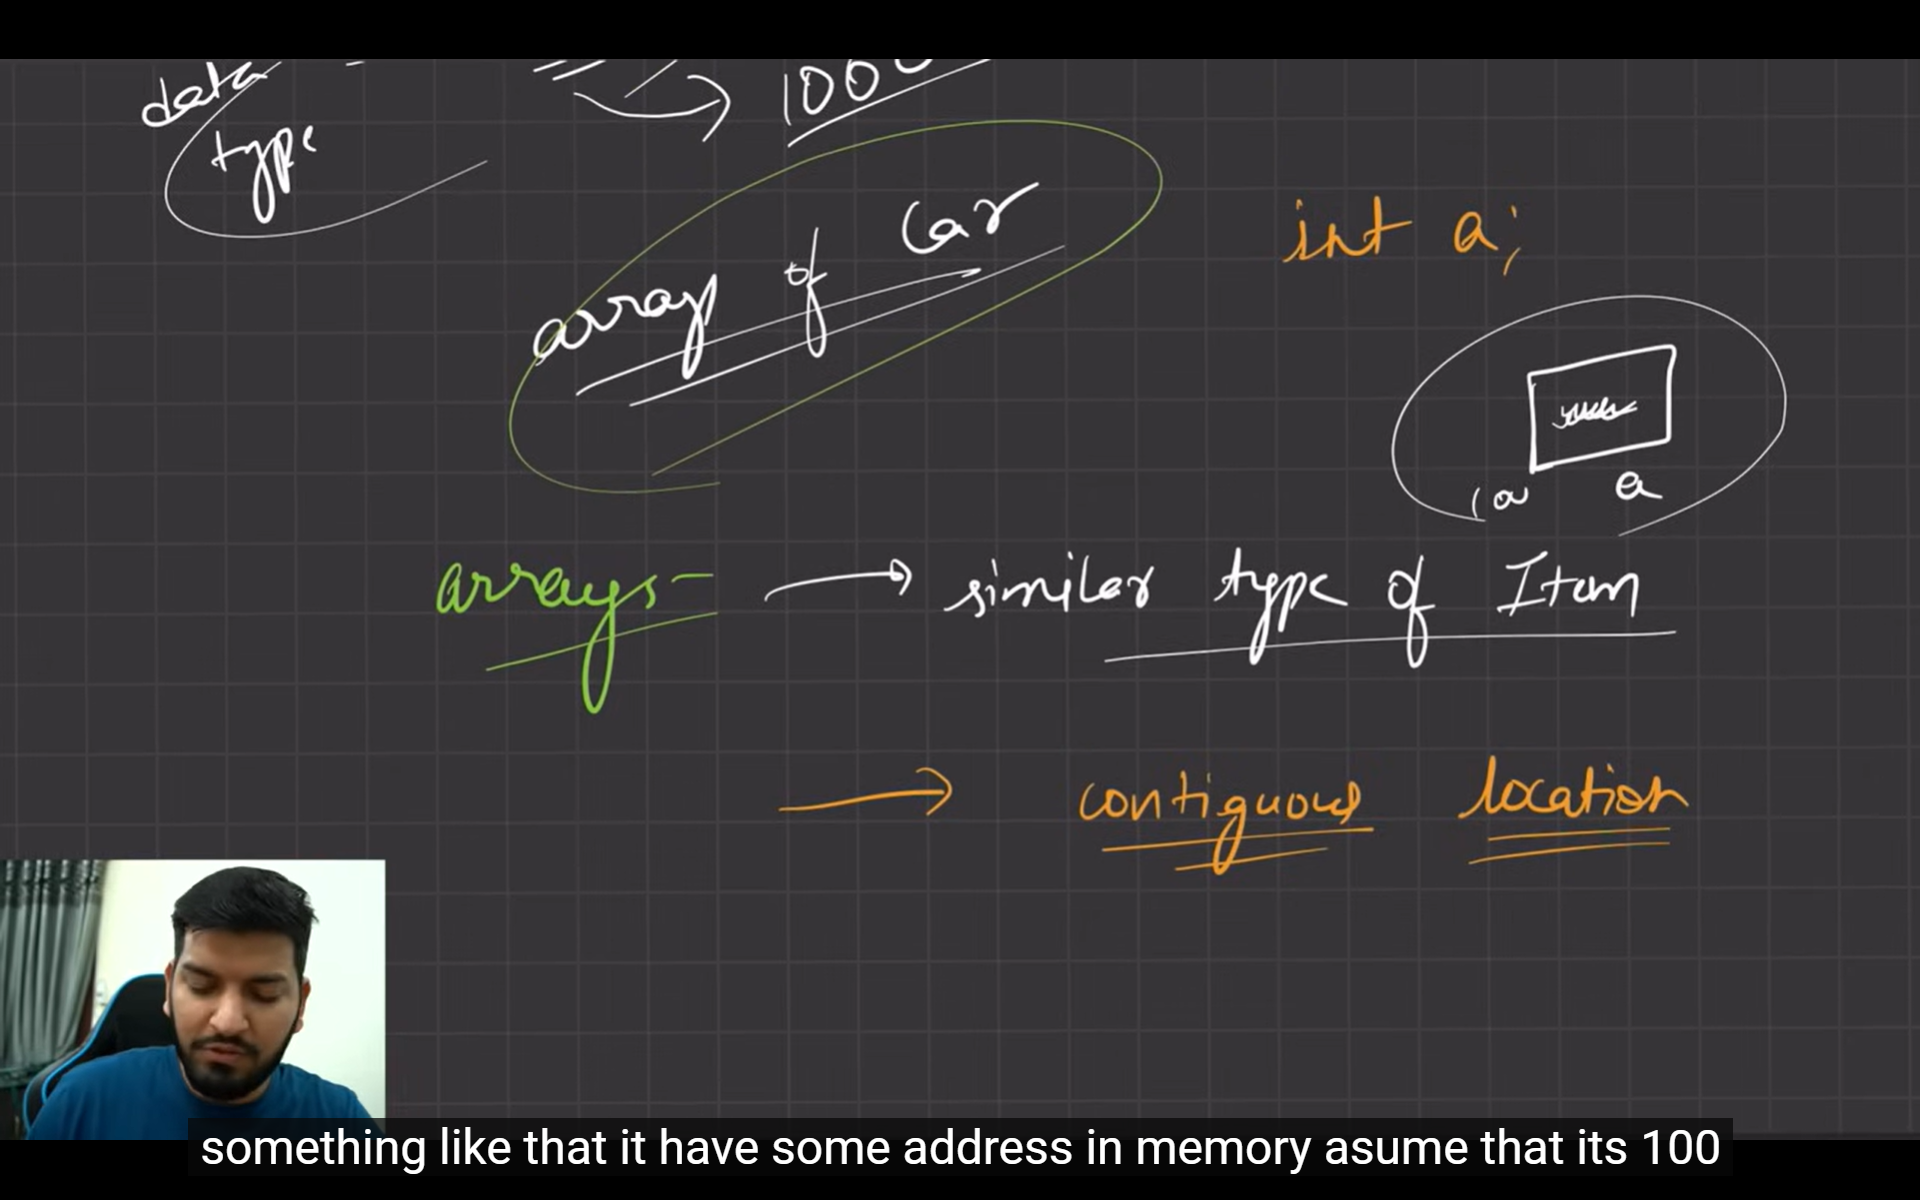 data
type
100
array of Car
int a;
a
arrays
similar type of Item
contiguous location
something like that it have some address in memory asume that its 100